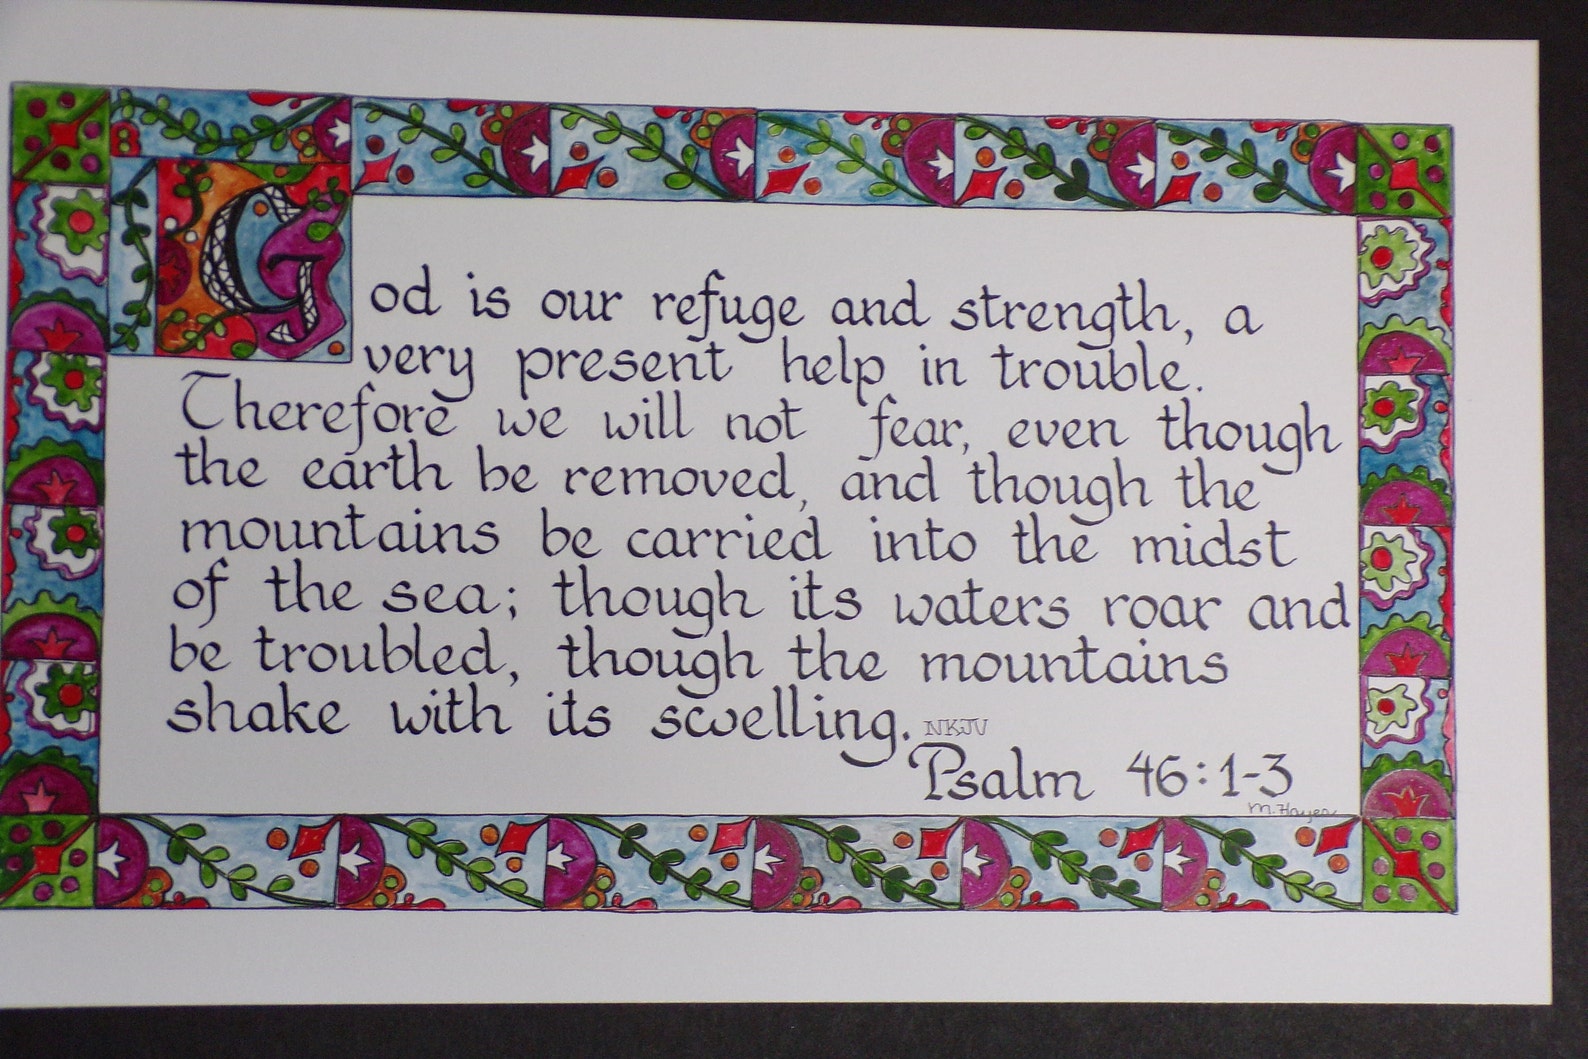 God is our refuge and strength, a
very present help in trouble.
Therefore we will not fear, even though
the earth be removed, and though the
mountains be carried into the midst
of the sea; though its waters roar and
be troubled, though the mountains
shake with its swelling. NKJV
Psalm 46:1-3
M. Hayes